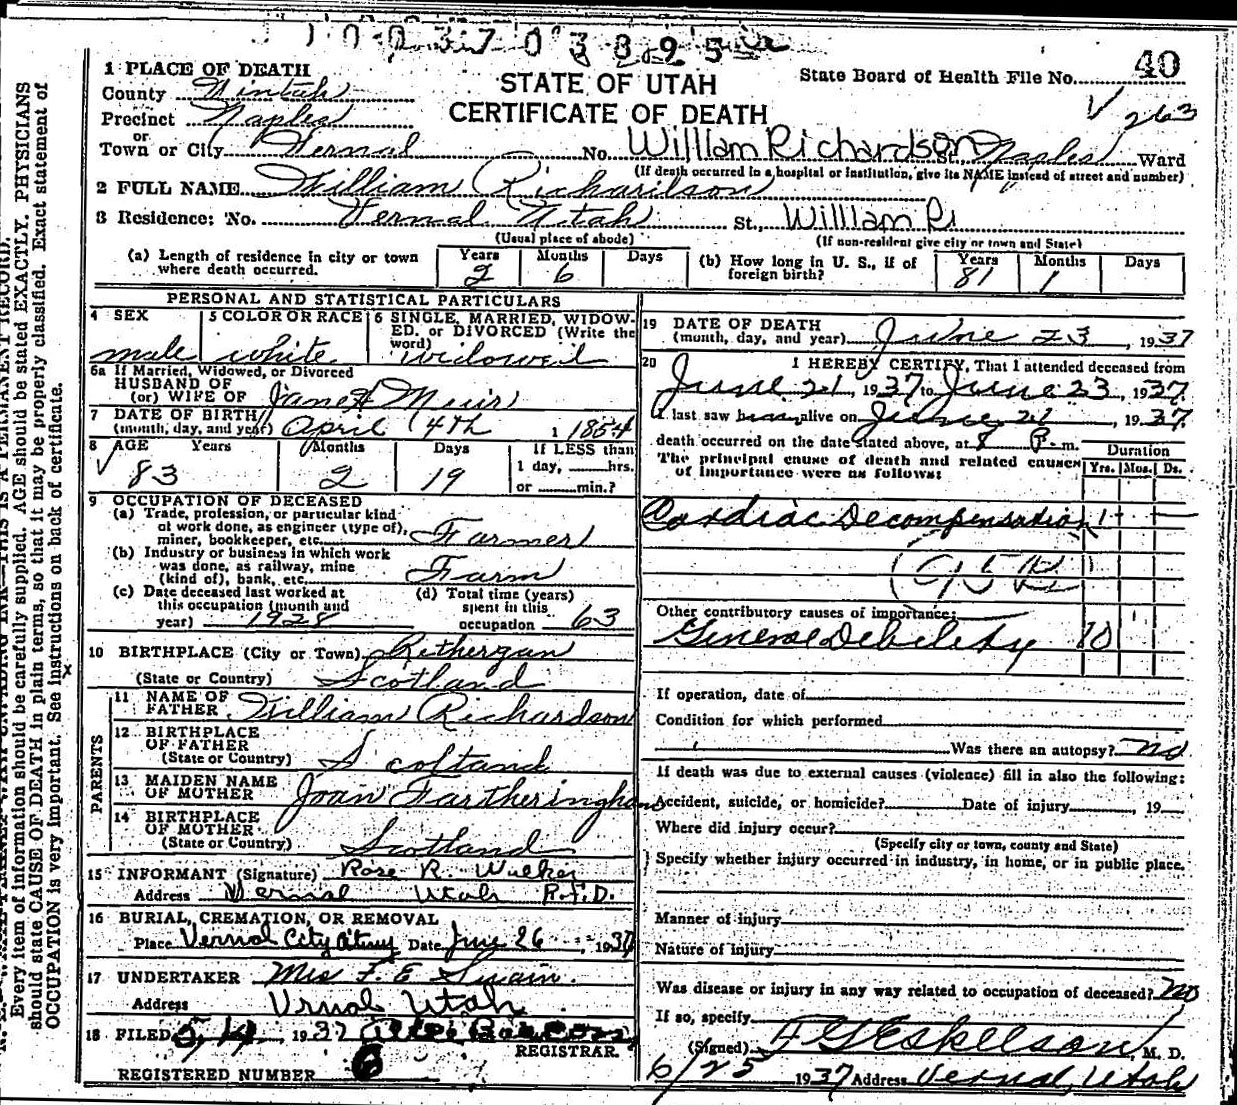 1003703825
40
1 PLACE OF DEATH
STATE OF UTAH
State Board of Health File No.
County Uintah
CERTIFICATE OF DEATH
263
Precinct Naples
or
Town or City Vernal No. William Richardson St., Naples Ward
(If death occurred in a hospital or institution, give its NAME instead of street and number)
2 FULL NAME William Richardson
3 Residence: No. Vernal Utah St., William Ri
(Usual place of abode) (If non-resident give city or town and State)
(a) Length of residence in city or town where death occurred. Years 2 Months 6 Days
(b) How long in U. S., if of foreign birth? Years 81 Months 1 Days
PERSONAL AND STATISTICAL PARTICULARS
4 SEX male
5 COLOR OR RACE white
6 SINGLE, MARRIED, WIDOWED, or DIVORCED (Write the word) widowed
6a If Married, Widowed, or Divorced
HUSBAND OF
(or) WIFE OF Janet Muir
7 DATE OF BIRTH
(month, day, and year) April 4th 1 1854
8 AGE Years Months Days If LESS than
83 2 19 1 day, hrs.
or min.?
9 OCCUPATION OF DECEASED
(a) Trade, profession, or particular kind
of work done, as engineer (type of),
miner, bookkeeper, etc. Farmer
(b) Industry or business in which work
was done, as railway, mine
(kind of), bank, etc. Farm
(c) Date deceased last worked at
this occupation (month and
year) 1928
(d) Total time (years)
spent in this
occupation 63
10 BIRTHPLACE (City or Town)
(State or Country) Scotland
PARENTS
11 NAME OF
FATHER William Richardson
12 BIRTHPLACE
OF FATHER
(State or Country) Scotland
13 MAIDEN NAME
OF MOTHER Joan Fartheringham
14 BIRTHPLACE
OF MOTHER
(State or Country) Scotland
15 INFORMANT (Signature) Rose R. Walker
Address Vernal Utah R.F.D.
16 BURIAL, CREMATION, OR REMOVAL
Place Vernal City Date June 26, 1937
17 UNDERTAKER Mrs F. E Swain.
Address Vernal Utah
18 FILED 1937
REGISTRAR.
REGISTERED NUMBER
19 DATE OF DEATH
(month, day, and year) June 23, 1937
20 I HEREBY CERTIFY, That I attended deceased from
June 21, 1937 to June 23, 1937.
I last saw him alive on June 21, 1937.
death occurred on the date stated above, at 8 P. m.
The principal cause of death and related causes
of importance were as follows:
Duration
Yrs. Mos. Ds.
Cardiac Decompensation 1
Other contributory causes of importance:
General Debility 10
If operation, date of
Condition for which performed
Was there an autopsy? No
If death was due to external causes (violence) fill in also the following:
Accident, suicide, or homicide? Date of injury, 19
Where did injury occur?
(Specify city or town, county and State)
Specify whether injury occurred in industry, in home, or in public place.
Manner of injury
Nature of injury
Was disease or injury in any way related to occupation of deceased? No
If so, specify
(Signed) F G Eskelson, M. D.
6/25 1937 Address Vernal, Utah
Every item of information should be carefully supplied. AGE should be stated EXACTLY. PHYSICIANS
should state CAUSE OF DEATH in plain terms, so that it may be properly classified. Exact statement of
OCCUPATION is very important. See instructions on back of certificate.